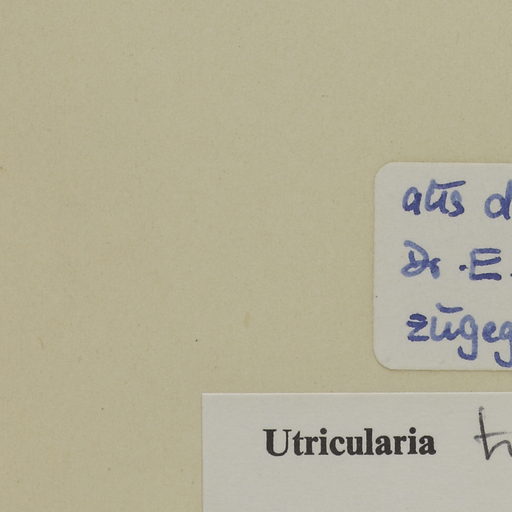 aūs d
Dr. E.
zūgeg
Utricularia